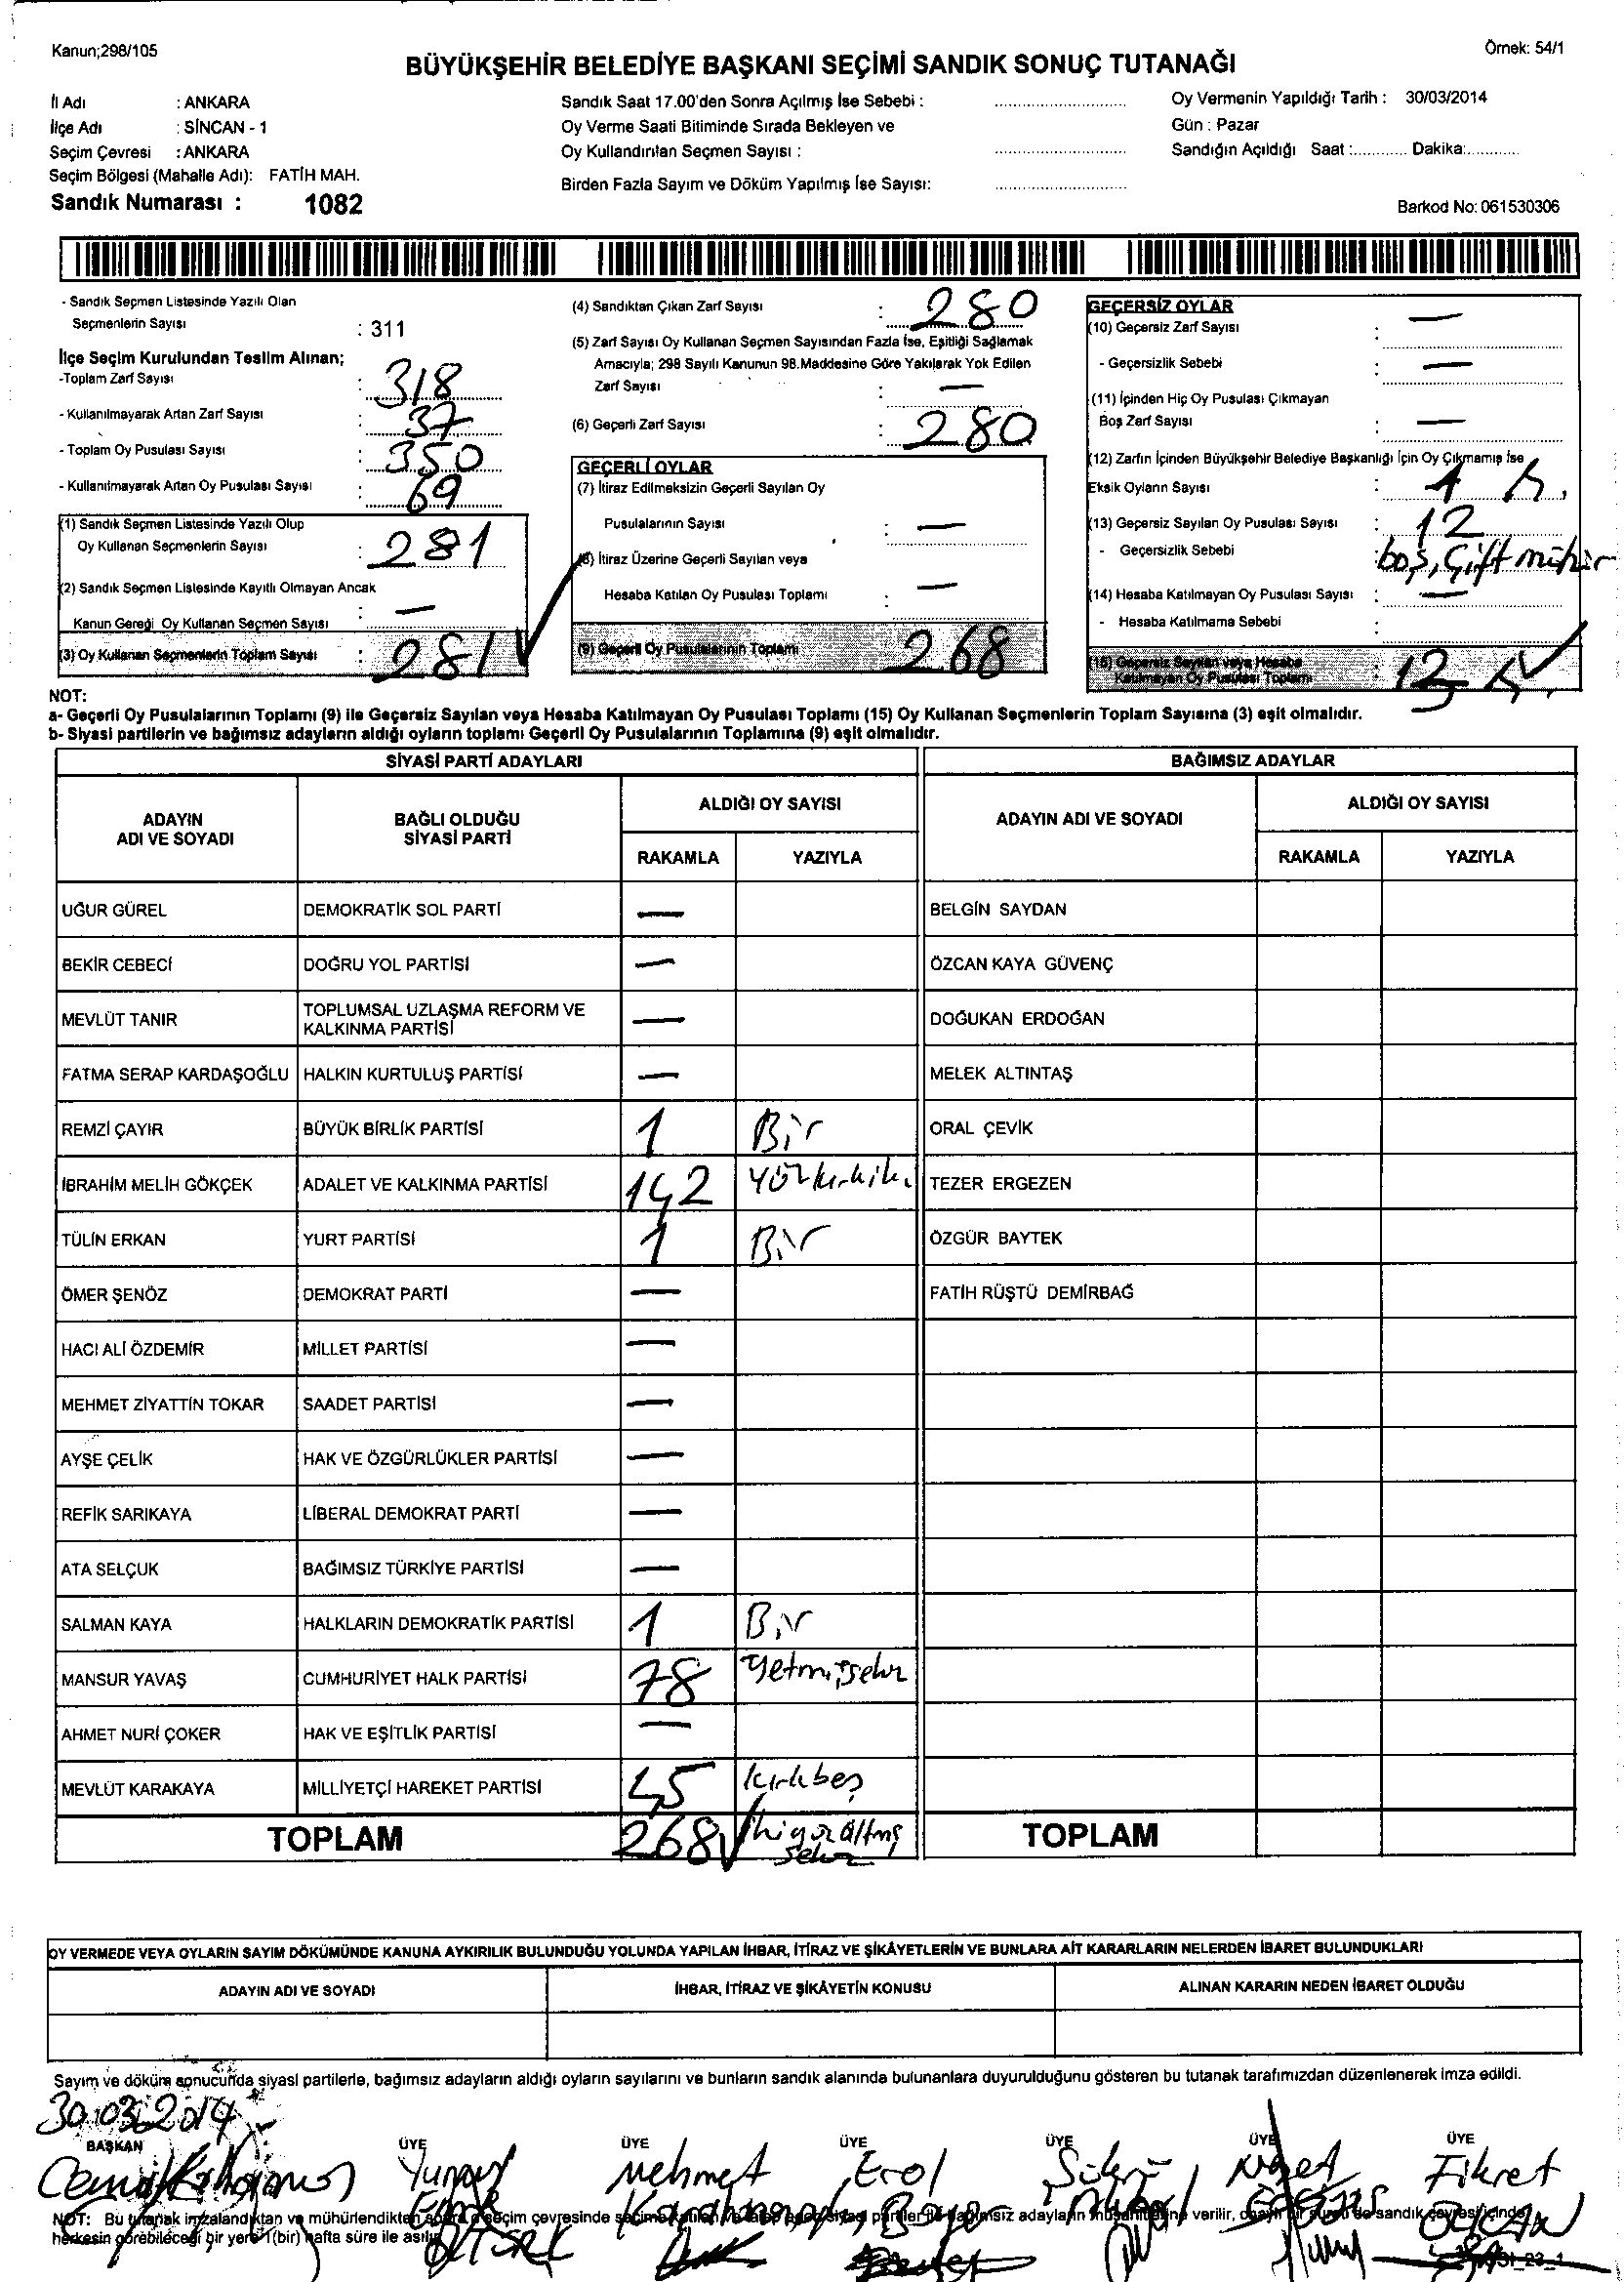 Kanun;298/105
Örnek: 54/1
BÜYÜKŞEHİR BELEDİYE BAŞKANI SEÇİMİ SANDIK SONUÇ TUTANAĞI
İl Adı : ANKARA
İlçe Adı : SİNCAN - 1
Seçim Çevresi : ANKARA
Seçim Bölgesi (Mahalle Adı): FATİH MAH.
Sandık Numarası : 1082
Sandık Saat 17.00'den Sonra Açılmış İse Sebebi :
Oy Verme Saati Bitiminde Sırada Bekleyen ve
Oy Kullandırılan Seçmen Sayısı :
Birden Fazla Sayım ve Döküm Yapılmış İse Sayısı:
Oy Vermenin Yapıldığı Tarih : 30/03/2014
Gün : Pazar
Sandığın Açıldığı Saat :........... Dakika:...........
Barkod No: 061530306
- Sandık Seçmen Listesinde Yazılı Olan
Seçmenlerin Sayısı : 311
İlçe Seçim Kurulundan Teslim Alınan;
-Toplam Zarf Sayısı : 318
- Kullanılmayarak Artan Zarf Sayısı : 37
- Toplam Oy Pusulası Sayısı : 350
- Kullanılmayarak Artan Oy Pusulası Sayısı : 69
(1) Sandık Seçmen Listesinde Yazılı Olup
Oy Kullanan Seçmenlerin Sayısı : 281
(2) Sandık Seçmen Listesinde Kayıtlı Olmayan Ancak
Kanun Gereği Oy Kullanan Seçmen Sayısı : —
(3) Oy Kullanan Seçmenlerin Toplam Sayısı : 281
(4) Sandıktan Çıkan Zarf Sayısı : 280
(5) Zarf Sayısı Oy Kullanan Seçmen Sayısından Fazla İse, Eşitliği Sağlamak
Amacıyla; 298 Sayılı Kanunun 98.Maddesine Göre Yakılarak Yok Edilen
Zarf Sayısı : —
(6) Geçerli Zarf Sayısı : 280
GEÇERLİ OYLAR
(7) İtiraz Edilmeksizin Geçerli Sayılan Oy
Pusulalarının Sayısı : —
(8) İtiraz Üzerine Geçerli Sayılan veya
Hesaba Katılan Oy Pusulası Toplamı : —
(9) Geçerli Oy Pusulalarının Toplamı : 268
GEÇERSİZ OYLAR
(10) Geçersiz Zarf Sayısı : —
- Geçersizlik Sebebi : —
(11) İçinden Hiç Oy Pusulası Çıkmayan
Boş Zarf Sayısı : —
(12) Zarfın İçinden Büyükşehir Belediye Başkanlığı İçin Oy Çıkmamış İse
Eksik Oyların Sayısı : 1
(13) Geçersiz Sayılan Oy Pusulası Sayısı : 12
- Geçersizlik Sebebi : boş, çift mühür
(14) Hesaba Katılmayan Oy Pusulası Sayısı : —
- Hesaba Katılmama Sebebi :
(15) Geçersiz Sayılan veya Hesaba
Katılmayan Oy Pusulası Toplamı :
NOT:
a- Geçerli Oy Pusulalarının Toplamı (9) ile Geçersiz Sayılan veya Hesaba Katılmayan Oy Pusulası Toplamı (15) Oy Kullanan Seçmenlerin Toplam Sayısına (3) eşit olmalıdır.
b- Siyasi partilerin ve bağımsız adayların aldığı oyların toplamı Geçerli Oy Pusulalarının Toplamına (9) eşit olmalıdır.
SİYASİ PARTİ ADAYLARI
BAĞIMSIZ ADAYLAR
ADAYIN ADI VE SOYADI
BAĞLI OLDUĞU SİYASİ PARTİ
ALDIĞI OY SAYISI
RAKAMLA YAZIYLA
ADAYIN ADI VE SOYADI
ALDIĞI OY SAYISI
RAKAMLA YAZIYLA
UĞUR GÜREL DEMOKRATİK SOL PARTİ — BELGİN SAYDAN
BEKİR CEBECİ DOĞRU YOL PARTİSİ — ÖZCAN KAYA GÜVENÇ
MEVLÜT TANIR TOPLUMSAL UZLAŞMA REFORM VE KALKINMA PARTİSİ — DOĞUKAN ERDOĞAN
FATMA SERAP KARDAŞOĞLU HALKIN KURTULUŞ PARTİSİ — MELEK ALTINTAŞ
REMZİ ÇAYIR BÜYÜK BİRLİK PARTİSİ 1 Bir ORAL ÇEVİK
İBRAHİM MELİH GÖKÇEK ADALET VE KALKINMA PARTİSİ 142 yüzkırkiki TEZER ERGEZEN
TÜLİN ERKAN YURT PARTİSİ 1 Bir ÖZGÜR BAYTEK
ÖMER ŞENÖZ DEMOKRAT PARTİ — FATİH RÜŞTÜ DEMİRBAĞ
HACI ALİ ÖZDEMİR MİLLET PARTİSİ —
MEHMET ZİYATTİN TOKAR SAADET PARTİSİ —
AYŞE ÇELİK HAK VE ÖZGÜRLÜKLER PARTİSİ —
REFİK SARIKAYA LİBERAL DEMOKRAT PARTİ —
ATA SELÇUK BAĞIMSIZ TÜRKİYE PARTİSİ —
SALMAN KAYA HALKLARIN DEMOKRATİK PARTİSİ 1 Bir
MANSUR YAVAŞ CUMHURİYET HALK PARTİSİ 78 yetmişsekiz
AHMET NURİ ÇOKER HAK VE EŞİTLİK PARTİSİ —
MEVLÜT KARAKAYA MİLLİYETÇİ HAREKET PARTİSİ 45 kırkbeş
TOPLAM 268 ikiyüzaltmış sekiz TOPLAM
OY VERMEDE VEYA OYLARIN SAYIM DÖKÜMÜNDE KANUNA AYKIRILIK BULUNDUĞU YOLUNDA YAPILAN İHBAR, İTİRAZ VE ŞİKÂYETLERİN VE BUNLARA AİT KARARLARIN NELERDEN İBARET BULUNDUKLARI
ADAYIN ADI VE SOYADI İHBAR, İTİRAZ VE ŞİKÂYETİN KONUSU ALINAN KARARIN NEDEN İBARET OLDUĞU
Sayım ve döküm sonucunda siyasi partilerle, bağımsız adayların aldığı oyların sayılarını ve bunların sandık alanında bulunanlara duyurulduğunu gösteren bu tutanak tarafımızdan düzenlenerek imza edildi.
30.03.2014
BAŞKAN ÜYE ÜYE ÜYE ÜYE ÜYE ÜYE
Mehmet Erol Şükrü Fikret
NOT: Bu tutanak imzalandıktan ve mühürlendikten sonra seçim çevresinde
herkesin görebileceği bir yere 1(bir) hafta süre ile asılır.